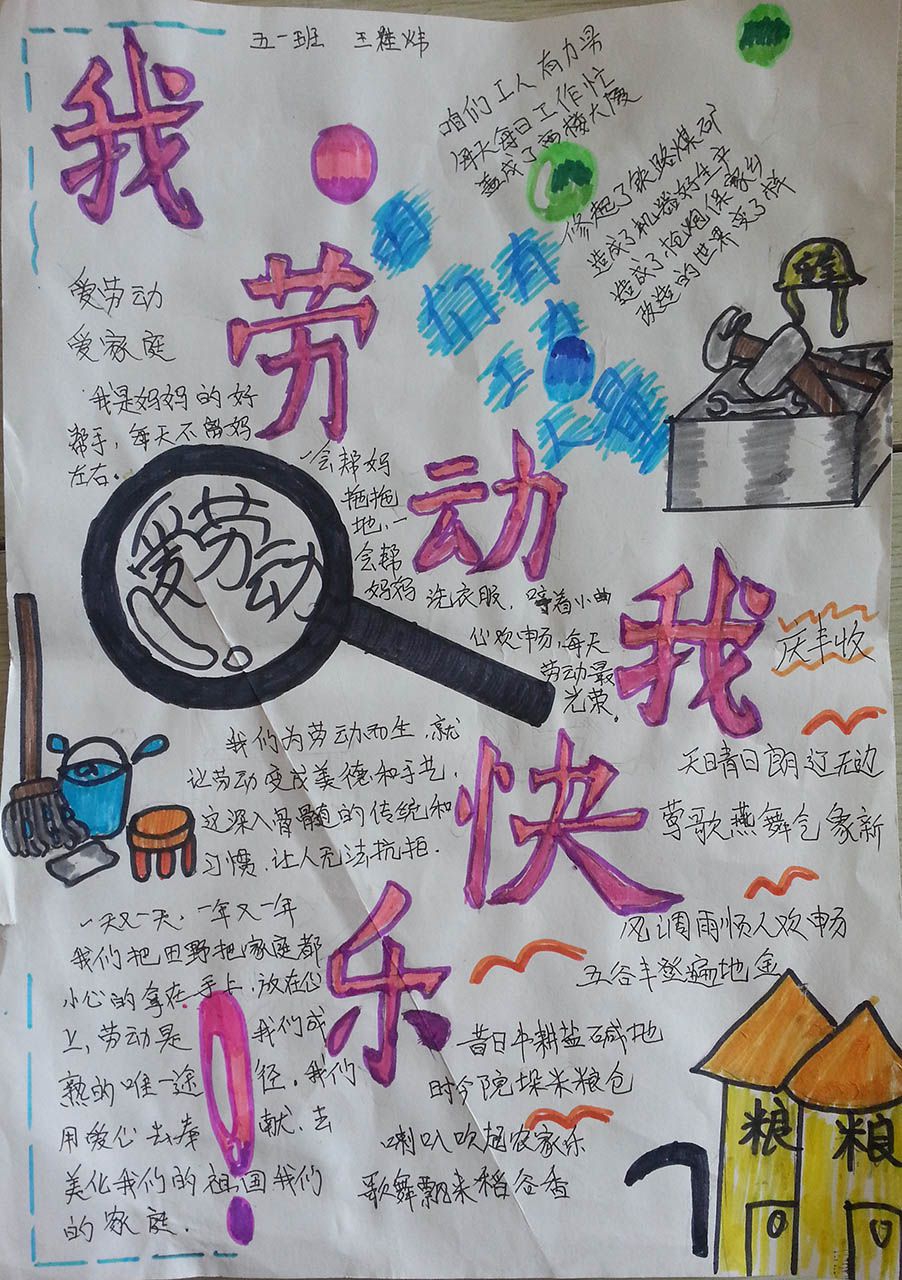 五一班 王
我劳动我快乐!
咱们工人有力量
每天每日工作忙
盖成了高楼大厦
修起了铁路煤矿
造成了机器好生产
造成了枪炮保家乡
改造的世界变了样
咱们有
工人
力量
安全
爱劳动
爱家庭
我是妈妈的好
帮手，每天不离妈
左右。
一会帮妈
拖拖
地，一
会帮
妈妈 洗衣服，哼着小曲
心欢畅，每天
劳动最
光荣。
爱劳动!
庆丰收
天晴日朗辽无边
莺歌燕舞气象新
风调雨顺人欢畅
五谷丰登遍地金
昔日牛耕盐碱地
时今院垛米粮仓
喇叭吹起农家乐
歌舞飘来稻谷香
我们为劳动而生，就
让劳动变成美德和手艺，
这深入骨髓的传统和
习惯，让人无法抗拒.
一天又一天，一年又一年
我们把田野把家庭都
小心的拿在手上，放在心
上，劳动是 我们成
熟的唯一途 径，我们
用爱心去奉 献，去
美化我们的祖国我们
的家庭.
粮
粮